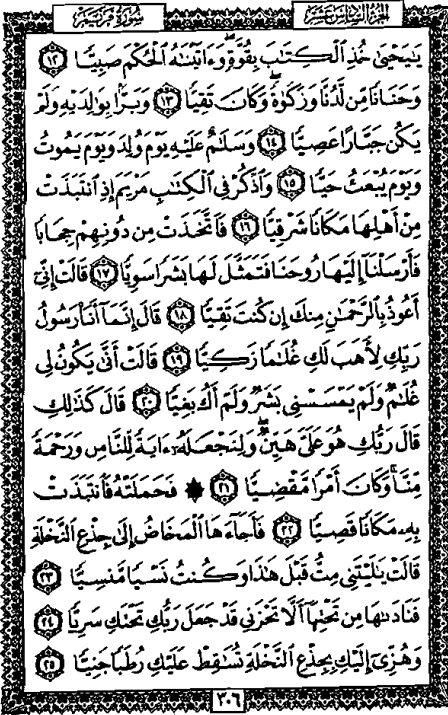 الجزء السادس عشر
سورة مريم
يَٰيَحْيَىٰ خُذِ الْكِتَٰبَ بِقُوَّةٍ وَءَاتَيْنَٰهُ الْحُكْمَ صَبِيًّا ١٢
وَحَنَانًا مِّن لَّدُنَّا وَزَكَوٰةً وَكَانَ تَقِيًّا ١٣ وَبَرًّا بِوَٰلِدَيْهِ وَلَمْ
يَكُن جَبَّارًا عَصِيًّا ١٤ وَسَلَٰمٌ عَلَيْهِ يَوْمَ وُلِدَ وَيَوْمَ يَمُوتُ
وَيَوْمَ يُبْعَثُ حَيًّا ١٥ وَاذْكُرْ فِي الْكِتَٰبِ مَرْيَمَ إِذِ انتَبَذَتْ
مِنْ أَهْلِهَا مَكَانًا شَرْقِيًّا ١٦ فَاتَّخَذَتْ مِن دُونِهِمْ حِجَابًا
فَأَرْسَلْنَا إِلَيْهَا رُوحَنَا فَتَمَثَّلَ لَهَا بَشَرًا سَوِيًّا ١٧ قَالَتْ إِنِّي
أَعُوذُ بِالرَّحْمَٰنِ مِنكَ إِن كُنتَ تَقِيًّا ١٨ قَالَ إِنَّمَا أَنَا رَسُولُ
رَبِّكِ لِأَهَبَ لَكِ غُلَٰمًا زَكِيًّا ١٩ قَالَتْ أَنَّىٰ يَكُونُ لِي
غُلَٰمٌ وَلَمْ يَمْسَسْنِي بَشَرٌ وَلَمْ أَكُ بَغِيًّا ٢٠ قَالَ كَذَٰلِكِ
قَالَ رَبُّكِ هُوَ عَلَيَّ هَيِّنٌ وَلِنَجْعَلَهُ ءَايَةً لِّلنَّاسِ وَرَحْمَةً
مِّنَّا وَكَانَ أَمْرًا مَّقْضِيًّا ٢١ فَحَمَلَتْهُ فَانتَبَذَتْ
بِهِ مَكَانًا قَصِيًّا ٢٢ فَأَجَاءَهَا الْمَخَاضُ إِلَىٰ جِذْعِ النَّخْلَةِ
قَالَتْ يَٰلَيْتَنِي مِتُّ قَبْلَ هَٰذَا وَكُنتُ نَسْيًا مَّنسِيًّا ٢٣
فَنَادَىٰهَا مِن تَحْتِهَا أَلَّا تَحْزَنِي قَدْ جَعَلَ رَبُّكِ تَحْتَكِ سَرِيًّا ٢٤
وَهُزِّي إِلَيْكِ بِجِذْعِ النَّخْلَةِ تُسَٰقِطْ عَلَيْكِ رُطَبًا جَنِيًّا ٢٥
٣٠٦